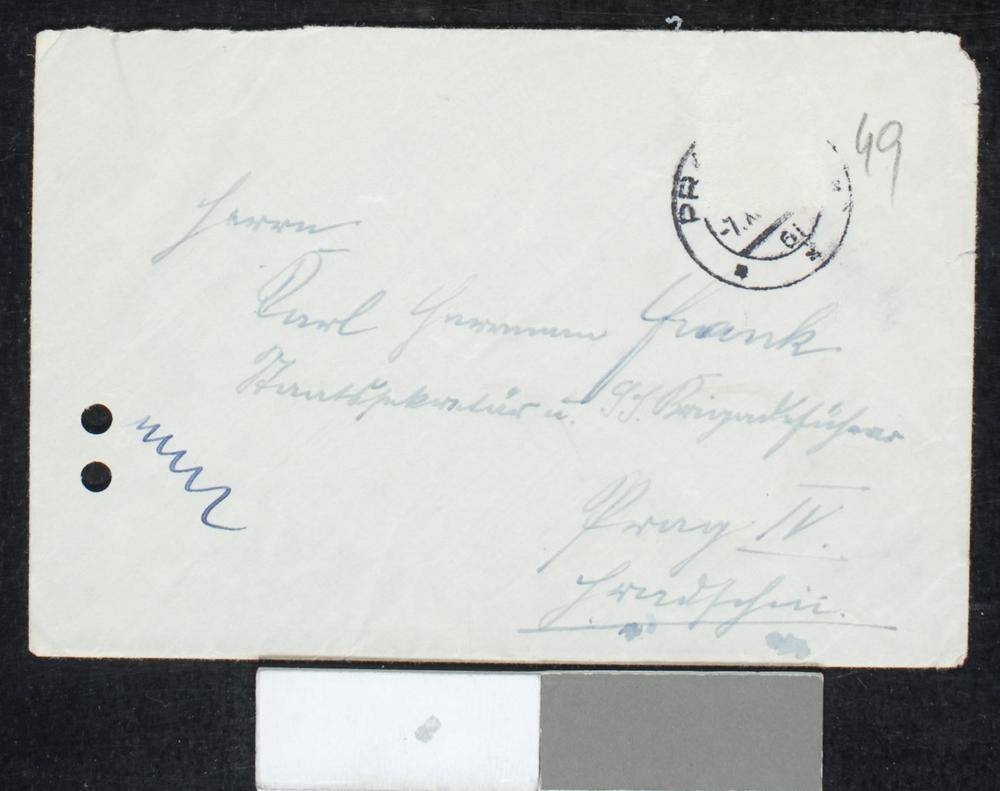 49
PR
-7.
Herrn
Karl Hermann Frank
Staatssekretär u. SS. Brigadeführer
Prag IV.
Hradschin.